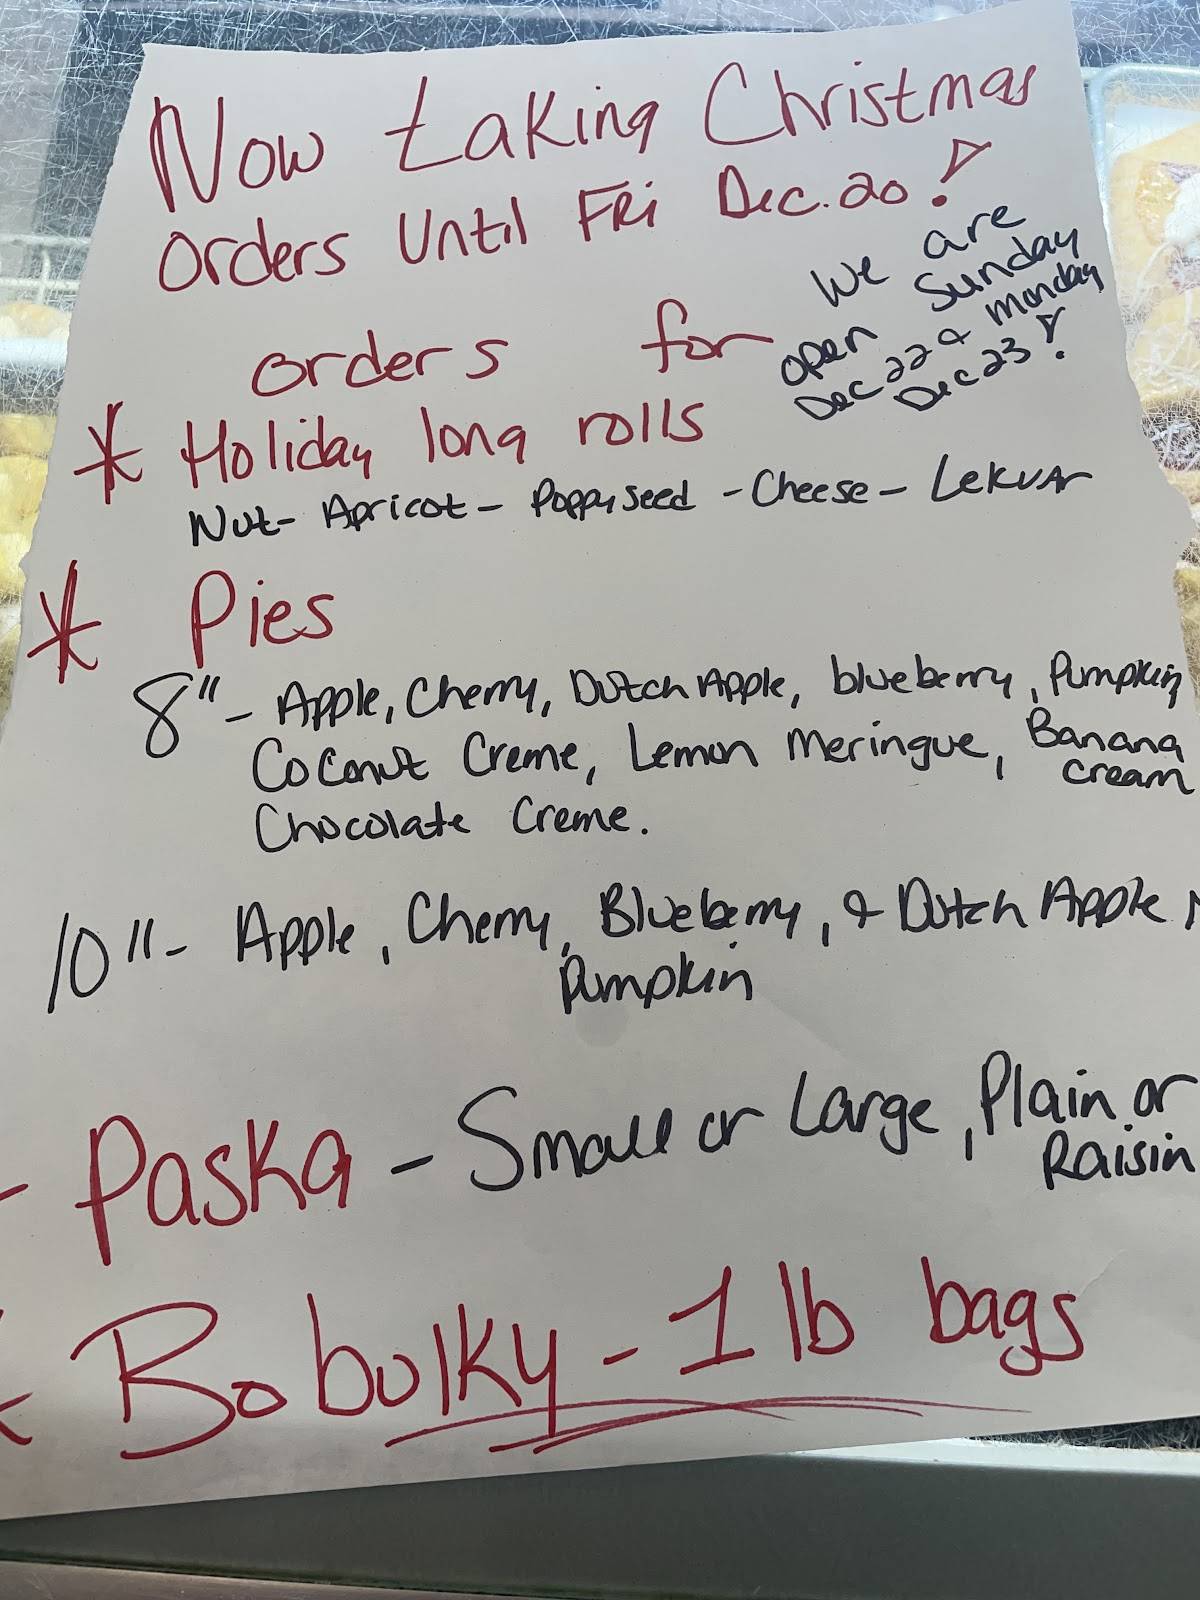 Now taking Christmas
orders Until FRi Dec. 20!
We are
open Sunday
Dec 22 & Monday
Dec 23!
orders for
* Holiday long rolls
Nut - Apricot - Poppyseed - Cheese - LEKVAr
* Pies
8" - Apple, Cherry, Dutch Apple, blueberry, Pumpkin
Coconut Creme, Lemon Meringue, Banana
cream
Chocolate Creme.
10" - Apple, Cherry, Blueberry, & Dutch Apple
Pumpkin
- Paska - Small or Large, Plain or
Raisin
* Bobulky - 1 lb bags